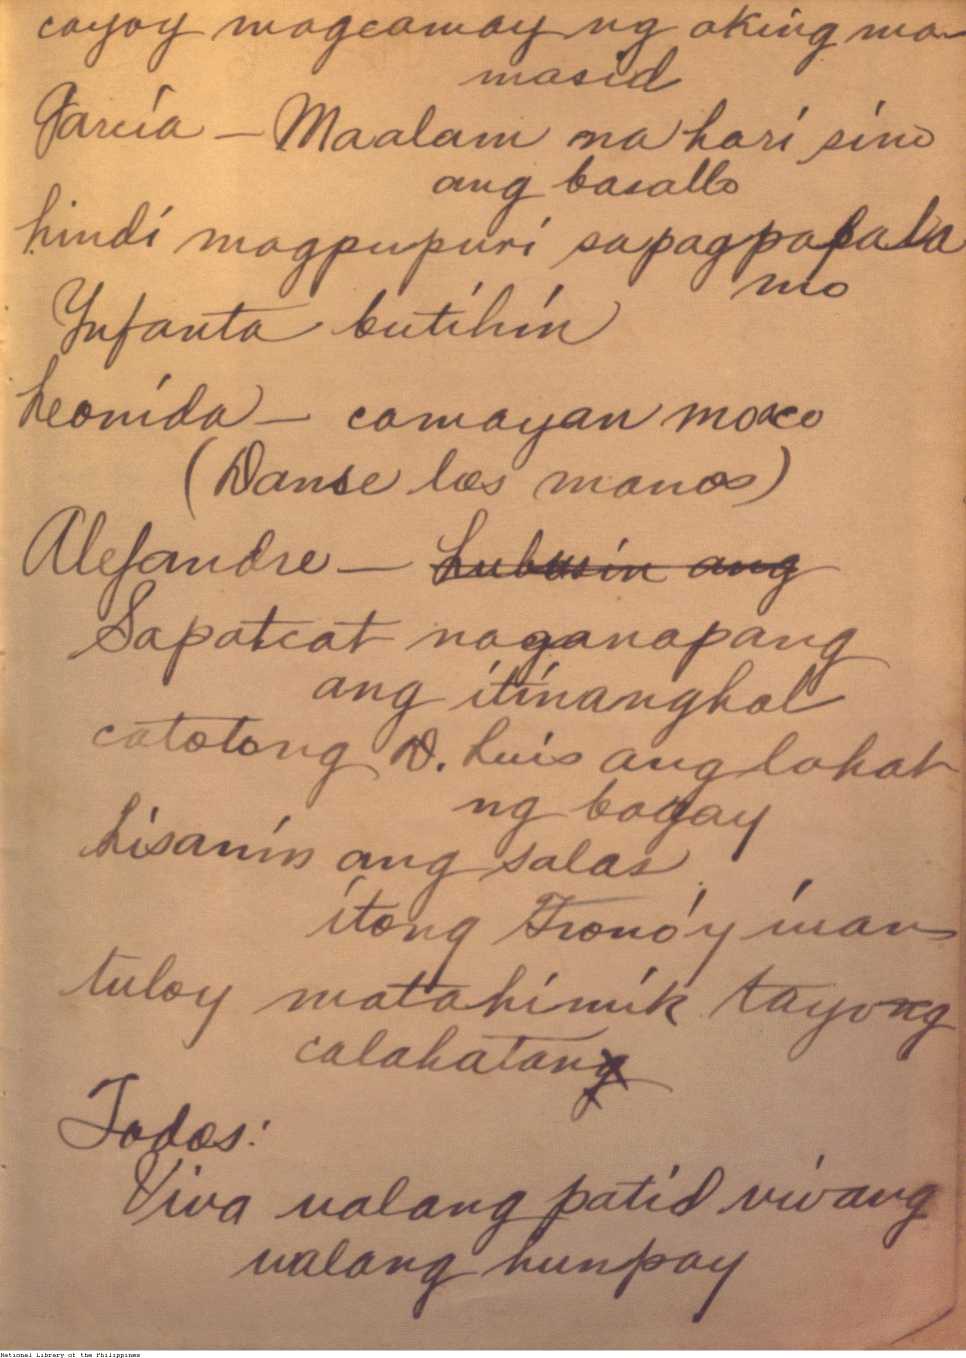 cayoy magcamay ng aking ma-
masid
Garcia - Maalam na hari sino
ang basallo
hindi magpupuri sapagpapala
mo
Ynfanta butihin
Leonida - camayan moaco
(Danse los manos)
Alejandre - Lubusin ang
Sapatcat naganapang
ang itinanghal
catotong D. Luis ang lahat
ng bagay
Lisanin ang salas
itong Trono'y iwan
tuloy matahimik tayong
calahatang
Todos:
Viva ualang patid vivang
ualang hunpay
National Library of the Philippines